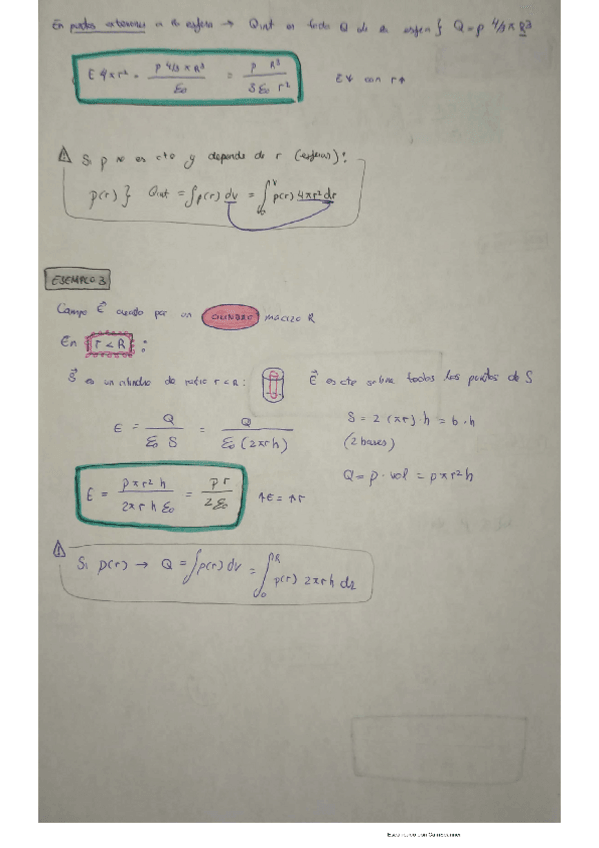 En puntos exteriores a la esfera → Qint es toda Q de la esfera } Q = ρ 4/3 π R³
E 4πr² = ρ 4/3 π R³ / ε₀ = ρ R³ / 3ε₀ r² E↓ con r↑
⚠ Si ρ no es cte y depende de r (esferas):
ρ(r) } Qint = ∫ρ(r) dv = ∫₀ʳ ρ(r) 4πr² dr
EJEMPLO 3
Campo E⃗ creado por un CILINDRO macizo R
En r < R :
S⃗ es un cilindro de radio r < R: E⃗ es cte sobre todos los puntos de S
E = Q / ε₀ S = Q / ε₀ (2πrh) S = 2 (πr)·h = b·h
(2 bases)
Q = ρ · vol = ρπr²h
E = ρπr²h / 2πrhε₀ = ρr / 2ε₀ ↑E = ↑r
⚠ Si ρ(r) → Q = ∫ρ(r) dv = ∫₀ᴿ ρ(r) 2πrh dr